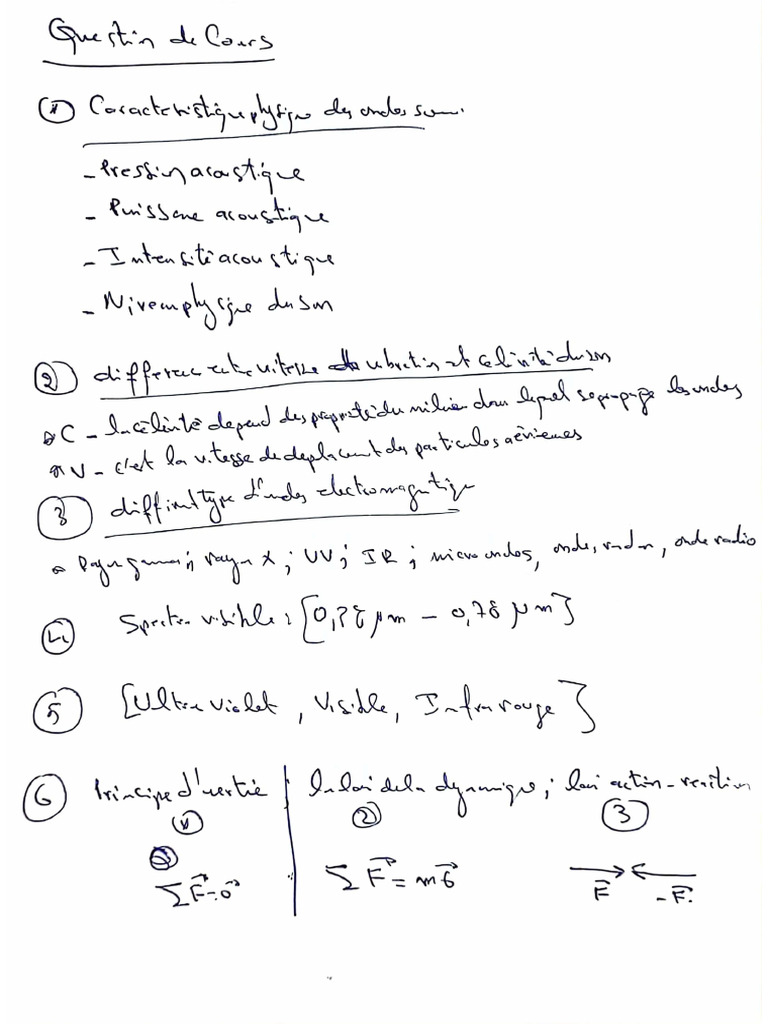 Question de Cours
① Caracteristique physique des ondes sono.
- Pression acoustique
- Puissance acoustique
- Intensité acoustique
- Niveau physique du son
② différence entre vitesse de vibration et célérité du son
C - la célérité depend des propriété du milieu dans lequel se propage les ondes
V - c'est la vitesse de deplacement des particules aériennes
③ different type d'ondes electromagnétique
Rayon gamma; rayon X; UV; IR; micro ondes, ondes radar, onde radio
④ Spectre visible: [0,38 μm - 0,78 μm]
⑤ [Ultra violet, Visible, Infra rouge]
⑥ Principe d'inertie | la loi de la dynamique; loi action-reaction
① ② ③
∑F⃗=0⃗ ∑F⃗ = m
F⃗ -F⃗.